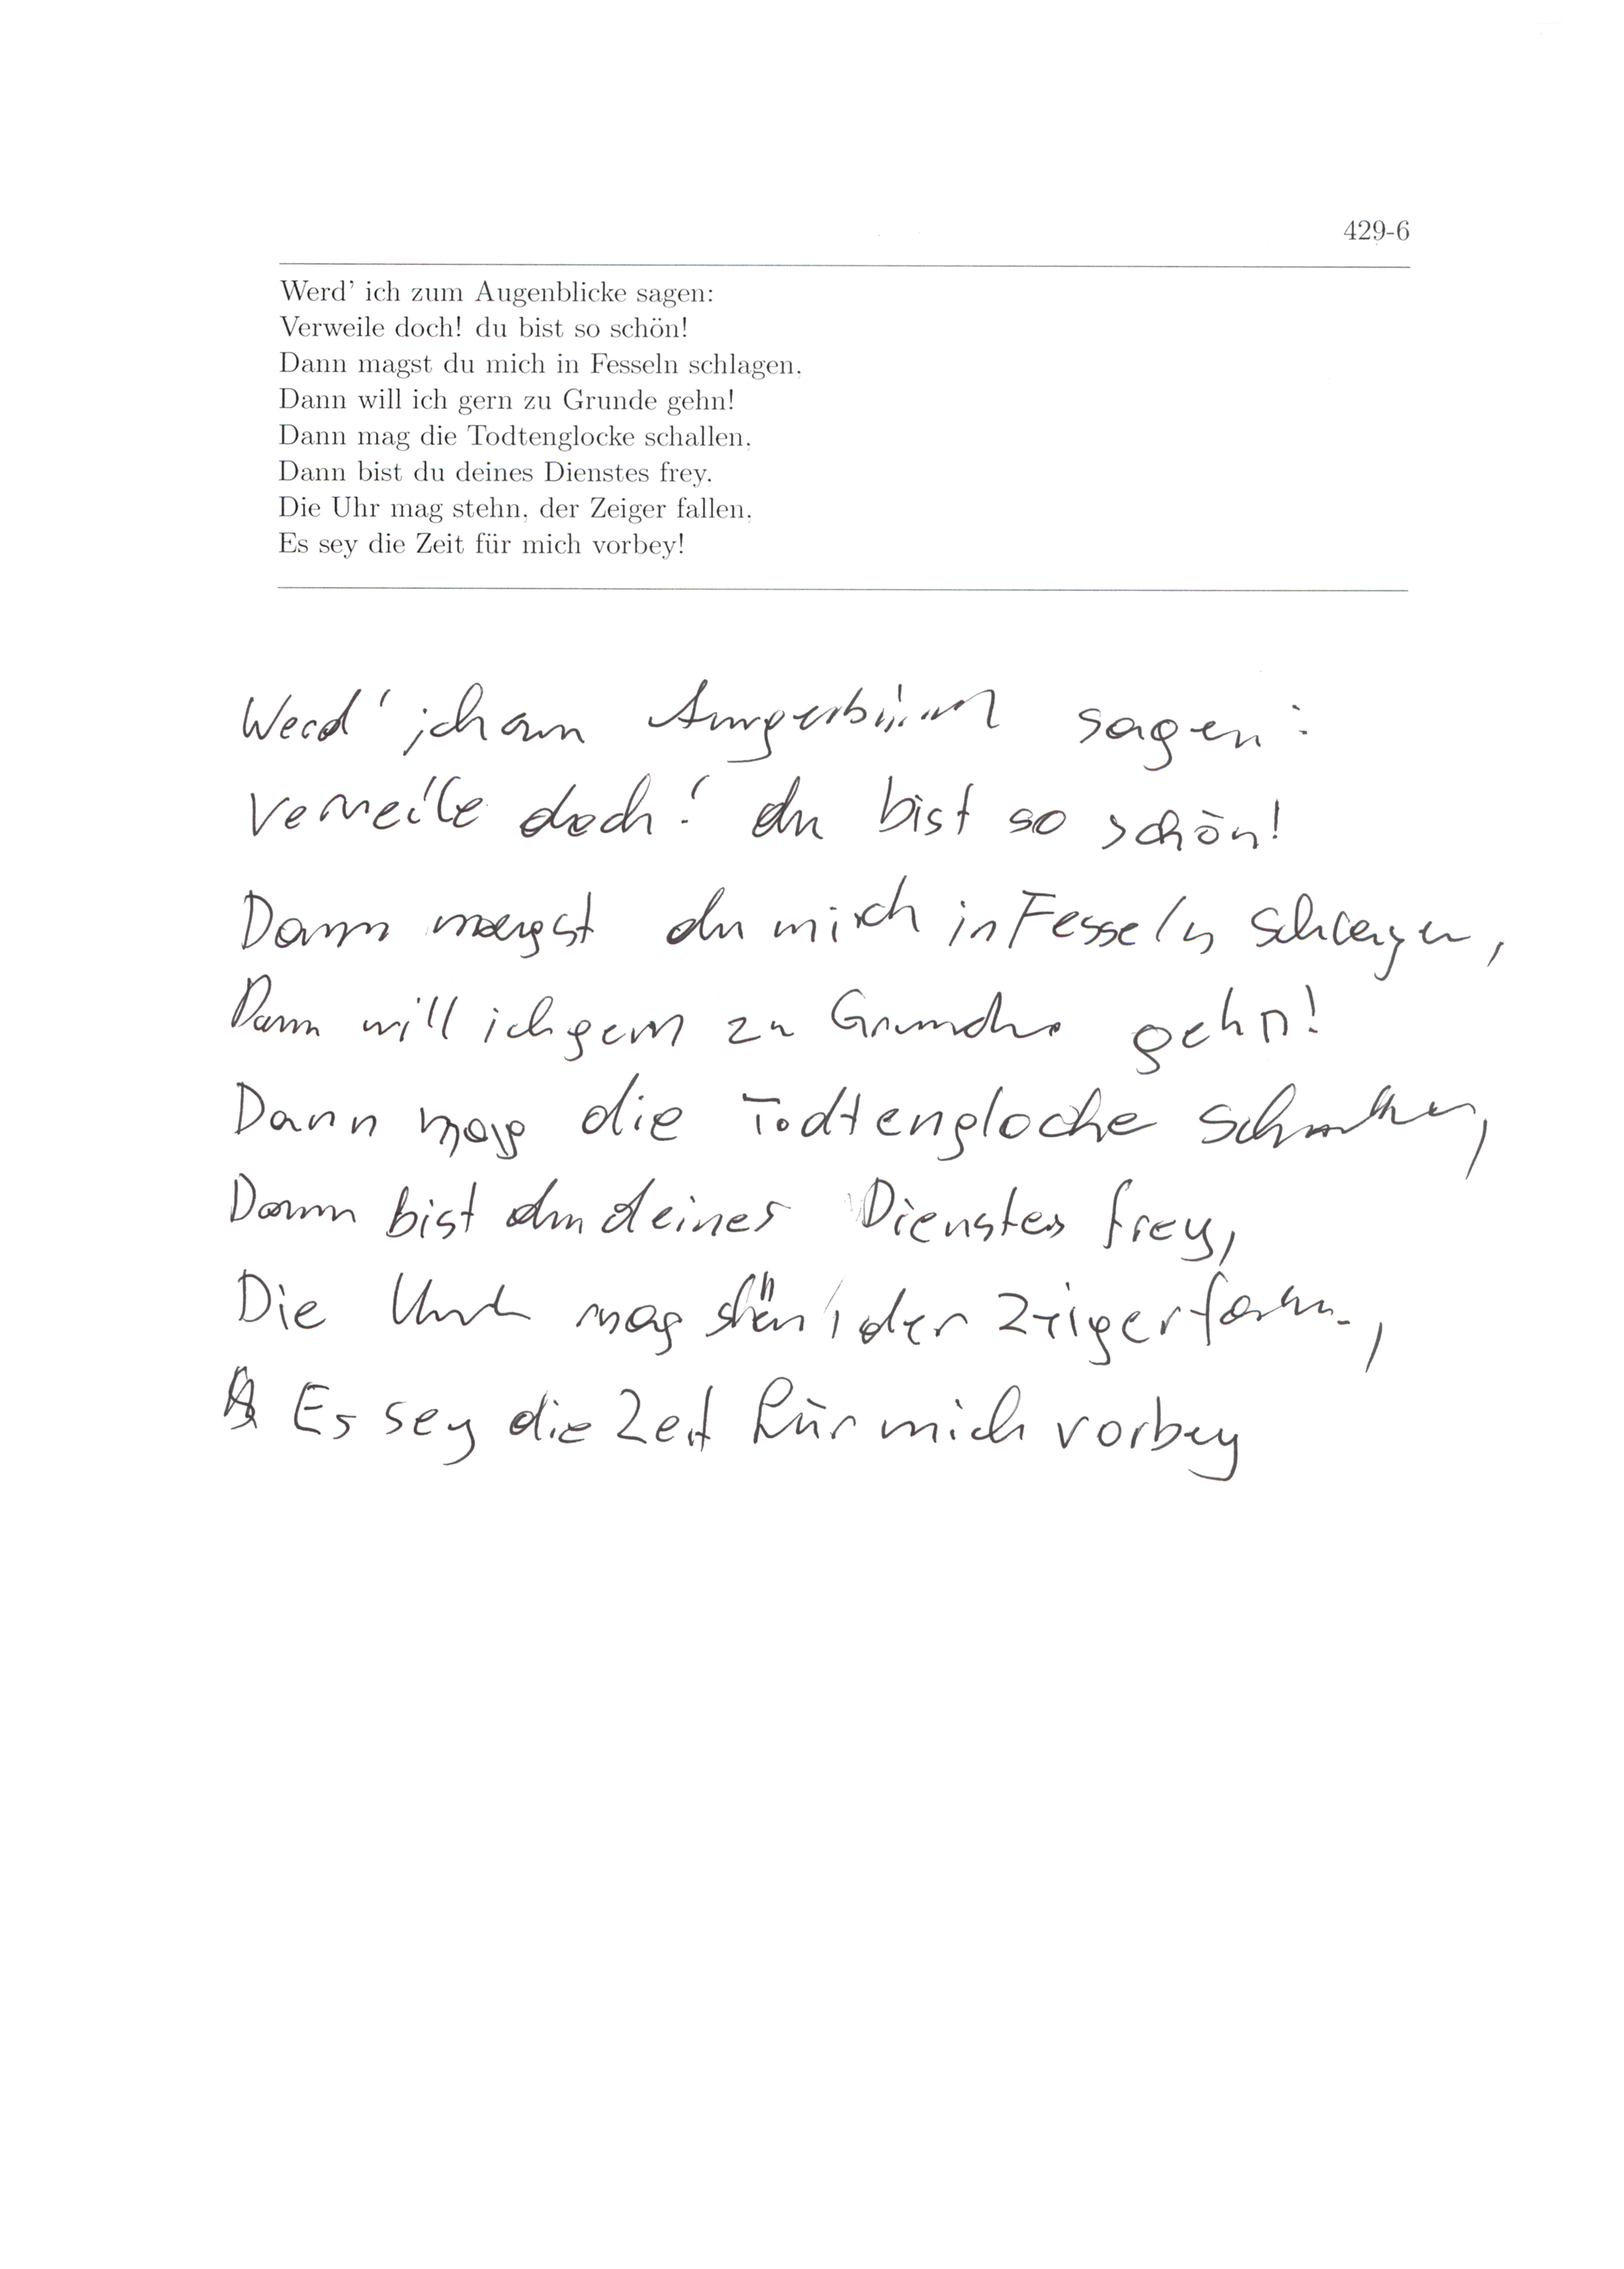 429-6
Werd' ich zum Augenblicke sagen:
Verweile doch! du bist so schön!
Dann magst du mich in Fesseln schlagen,
Dann will ich gern zu Grunde gehn!
Dann mag die Todtenglocke schallen,
Dann bist du deines Dienstes frey,
Die Uhr mag stehn, der Zeiger fallen,
Es sey die Zeit für mich vorbey!
Werd' ich am sagen:
Verweile doch! du bist so schön!
Dann magst du mich in Fesseln schlagen,
Dann will ich gern zu Grunde gehn!
Dann mag die Todtenglocke
Dann bist du deines Dienstes frey,
Die mag der Zeiger
Es sey die Zeit für mich vorbey